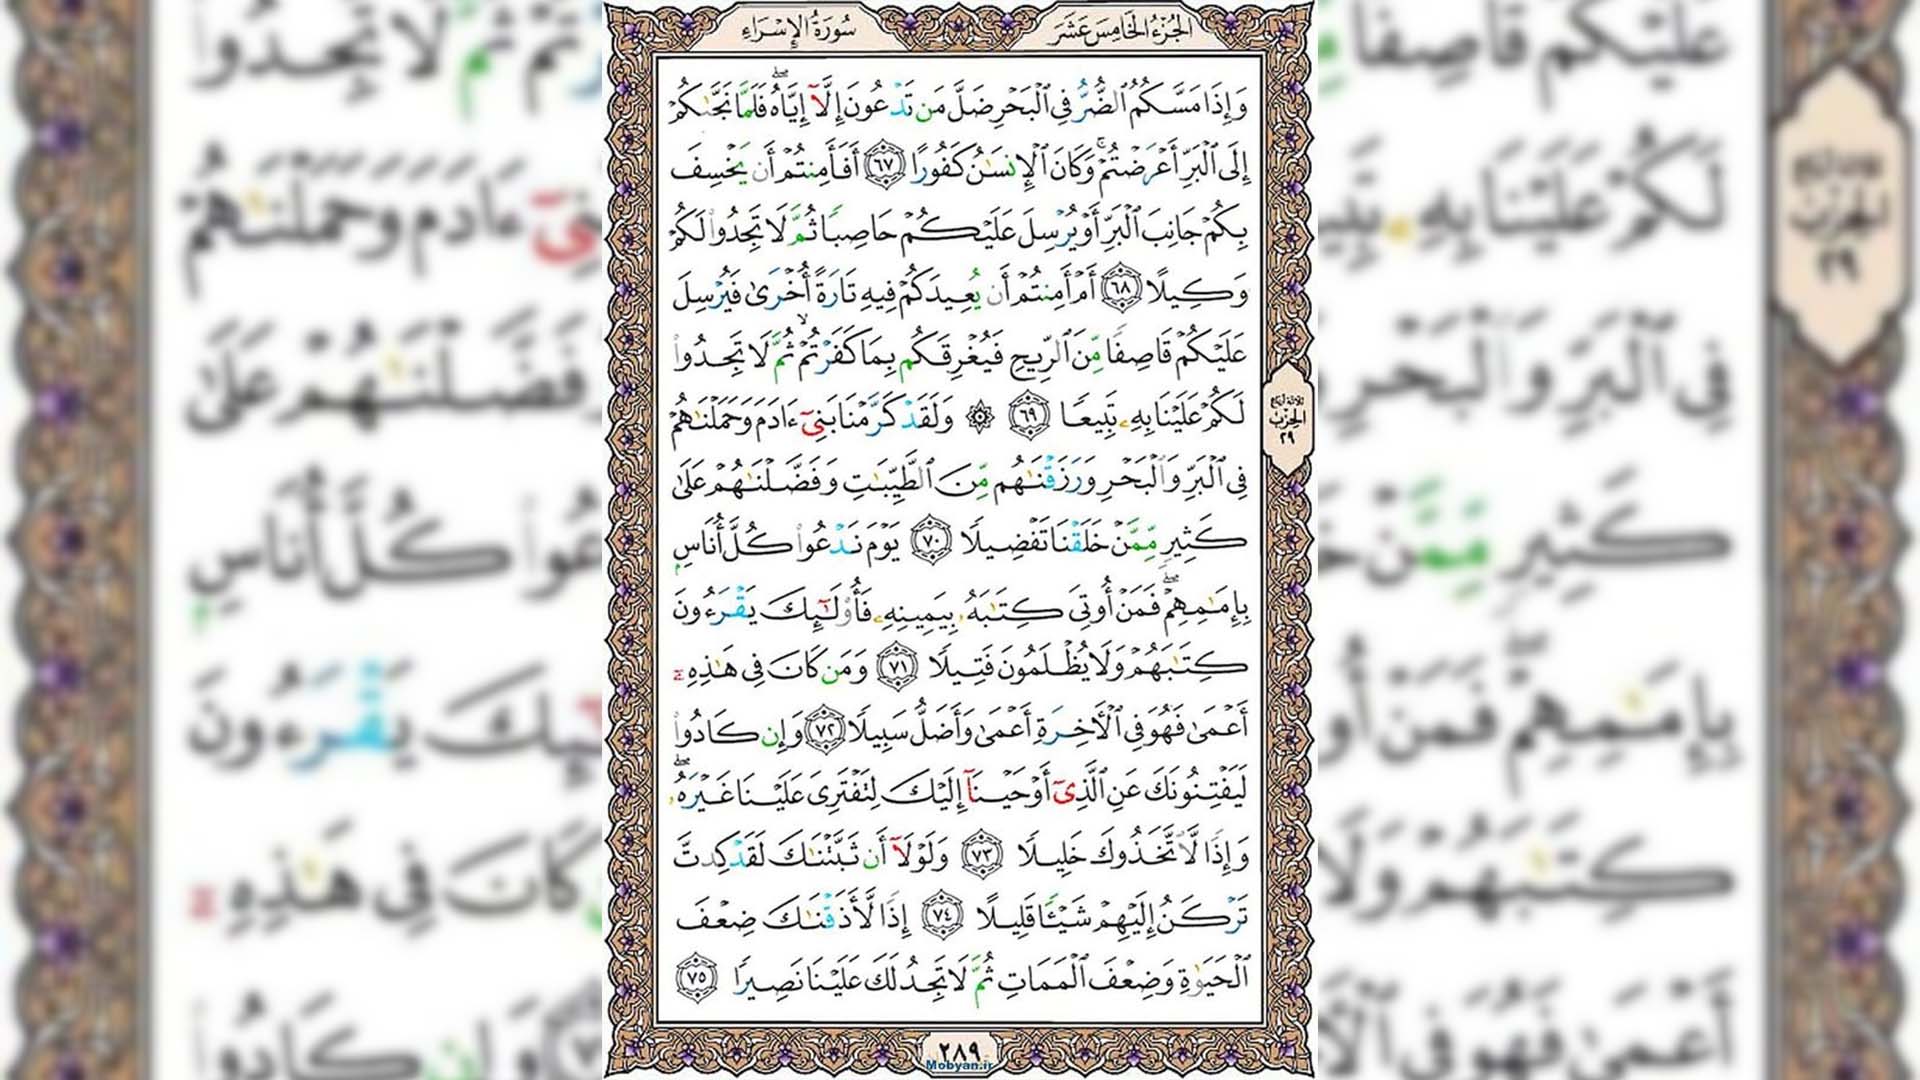 الجزء الخامس عشر
سورة الإسراء
وَإِذَا مَسَّكُمُ ٱلضُّرُّ فِى ٱلْبَحْرِ ضَلَّ مَن تَدْعُونَ إِلَّآ إِيَّاهُ ۖ فَلَمَّا نَجَّىٰكُمْ
إِلَى ٱلْبَرِّ أَعْرَضْتُمْ ۚ وَكَانَ ٱلْإِنسَـٰنُ كَفُورًا ﴿٦٧﴾ أَفَأَمِنتُمْ أَن يَخْسِفَ
بِكُمْ جَانِبَ ٱلْبَرِّ أَوْ يُرْسِلَ عَلَيْكُمْ حَاصِبًا ثُمَّ لَا تَجِدُوا۟ لَكُمْ
وَكِيلًا ﴿٦٨﴾ أَمْ أَمِنتُمْ أَن يُعِيدَكُمْ فِيهِ تَارَةً أُخْرَىٰ فَيُرْسِلَ
عَلَيْكُمْ قَاصِفًا مِّنَ ٱلرِّيحِ فَيُغْرِقَكُم بِمَا كَفَرْتُمْ ۙ ثُمَّ لَا تَجِدُوا۟
لَكُمْ عَلَيْنَا بِهِۦ تَبِيعًا ﴿٦٩﴾ ۞ وَلَقَدْ كَرَّمْنَا بَنِىٓ ءَادَمَ وَحَمَلْنَـٰهُمْ
فِى ٱلْبَرِّ وَٱلْبَحْرِ وَرَزَقْنَـٰهُم مِّنَ ٱلطَّيِّبَـٰتِ وَفَضَّلْنَـٰهُمْ عَلَىٰ
كَثِيرٍ مِّمَّنْ خَلَقْنَا تَفْضِيلًا ﴿٧٠﴾ يَوْمَ نَدْعُوا۟ كُلَّ أُنَاسٍۭ
بِإِمَـٰمِهِمْ ۖ فَمَنْ أُوتِىَ كِتَـٰبَهُۥ بِيَمِينِهِۦ فَأُو۟لَـٰٓئِكَ يَقْرَءُونَ
كِتَـٰبَهُمْ وَلَا يُظْلَمُونَ فَتِيلًا ﴿٧١﴾ وَمَن كَانَ فِى هَـٰذِهِۦٓ
أَعْمَىٰ فَهُوَ فِى ٱلْـَٔاخِرَةِ أَعْمَىٰ وَأَضَلُّ سَبِيلًا ﴿٧٢﴾ وَإِن كَادُوا۟
لَيَفْتِنُونَكَ عَنِ ٱلَّذِىٓ أَوْحَيْنَآ إِلَيْكَ لِتَفْتَرِىَ عَلَيْنَا غَيْرَهُۥ ۖ
وَإِذًا لَّٱتَّخَذُوكَ خَلِيلًا ﴿٧٣﴾ وَلَوْلَآ أَن ثَبَّتْنَـٰكَ لَقَدْ كِدتَّ
تَرْكَنُ إِلَيْهِمْ شَيْـًٔا قَلِيلًا ﴿٧٤﴾ إِذًا لَّأَذَقْنَـٰكَ ضِعْفَ
ٱلْحَيَوٰةِ وَضِعْفَ ٱلْمَمَاتِ ثُمَّ لَا تَجِدُ لَكَ عَلَيْنَا نَصِيرًا ﴿٧٥﴾
ثلاثة أرباع
الحزب
٢٩
٢٨٩
Mobyan.ir